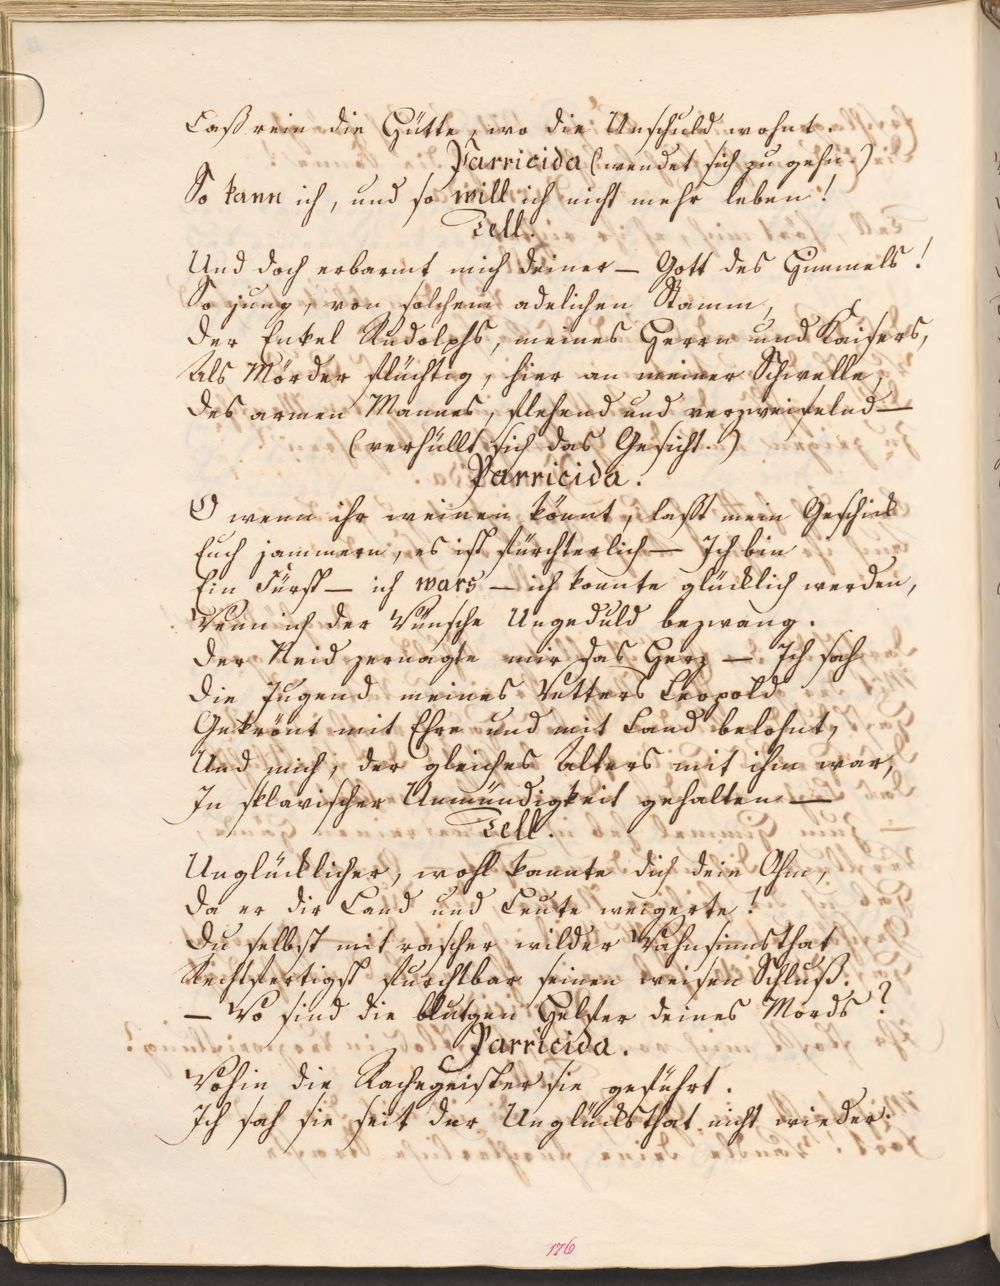 Laß rein die Hütte, wo die Unschuld wohnt.
Parricida (wendet sich zu gehn.)
So kann ich, und so will ich nicht mehr leben!
Tell.
Und doch erbarmt mich deiner — Gott des Himmels!
So jung, von solchem adelichen Stamm,
Der Enkel Rudolphs, meines Herrn und Kaisers,
Als Mörder flüchtig, hier an meiner Schwelle,
Des armen Mannes, flehend und verzweifelnd —
(verhüllt sich das Gesicht.)
Parricida.
O wenn ihr weinen könnt, laßt mein Geschick
Euch jammern, es ist fürchterlich — Ich bin
Ein Fürst — ich wars — ich konnte glücklich werden,
Wenn ich der Wünsche Ungeduld bezwang.
Der Neid zernagte mir das Herz — Ich sah
Die Jugend meines Vetters Leopold
Gekrönt mit Ehre und mit Land belohnt,
Und mich, der gleiches Alters mit ihm war,
In sklavischer Unmündigkeit gehalten —
Tell.
Unglücklicher, wohl kannte dich dein Ohm,
Da er dir Land und Leute weigerte!
Du selbst mit rascher wilder Wahnsinnsthat
Rechtfertigst furchtbar seinen weisen Schluß.
— Wo sind die blutgen Helfer deines Mords?
Parricida.
Wohin die Rachegeister sie geführt.
Ich sah sie seit der Unglücksthat nicht wieder.
176